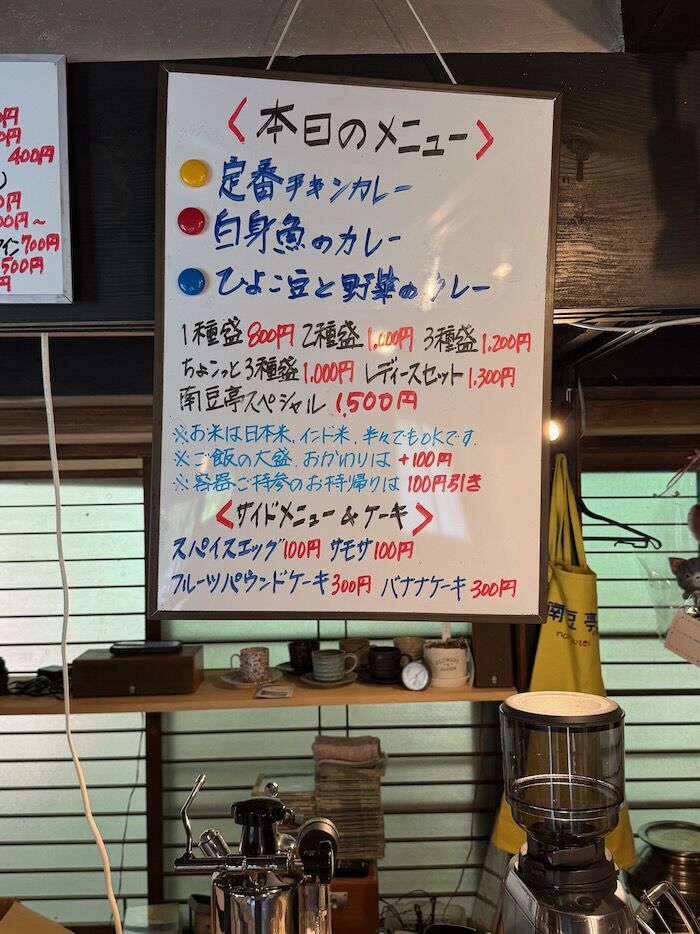 円
円
400円
円
00円〜
イン700円
500円
円
<本日のメニュー>
定番チキンカレー
白身魚のカレー
ひよこ豆と野菜のカレー
1種盛800円 2種盛1,000円 3種盛1,200円
ちょこっと3種盛1,000円 レディースセット1,300円
南豆亭スペシャル 1,500円
※お米は日本米、インド米、半々でもOKです。
※ご飯の大盛、おかわりは+100円
※容器ご持参のお持帰りは100円引き
<サイドメニュー&ケーキ>
スパイスエッグ100円 サモサ100円
フルーツパウンドケーキ300円 バナナケーキ300円
南豆亭
FLOWERS